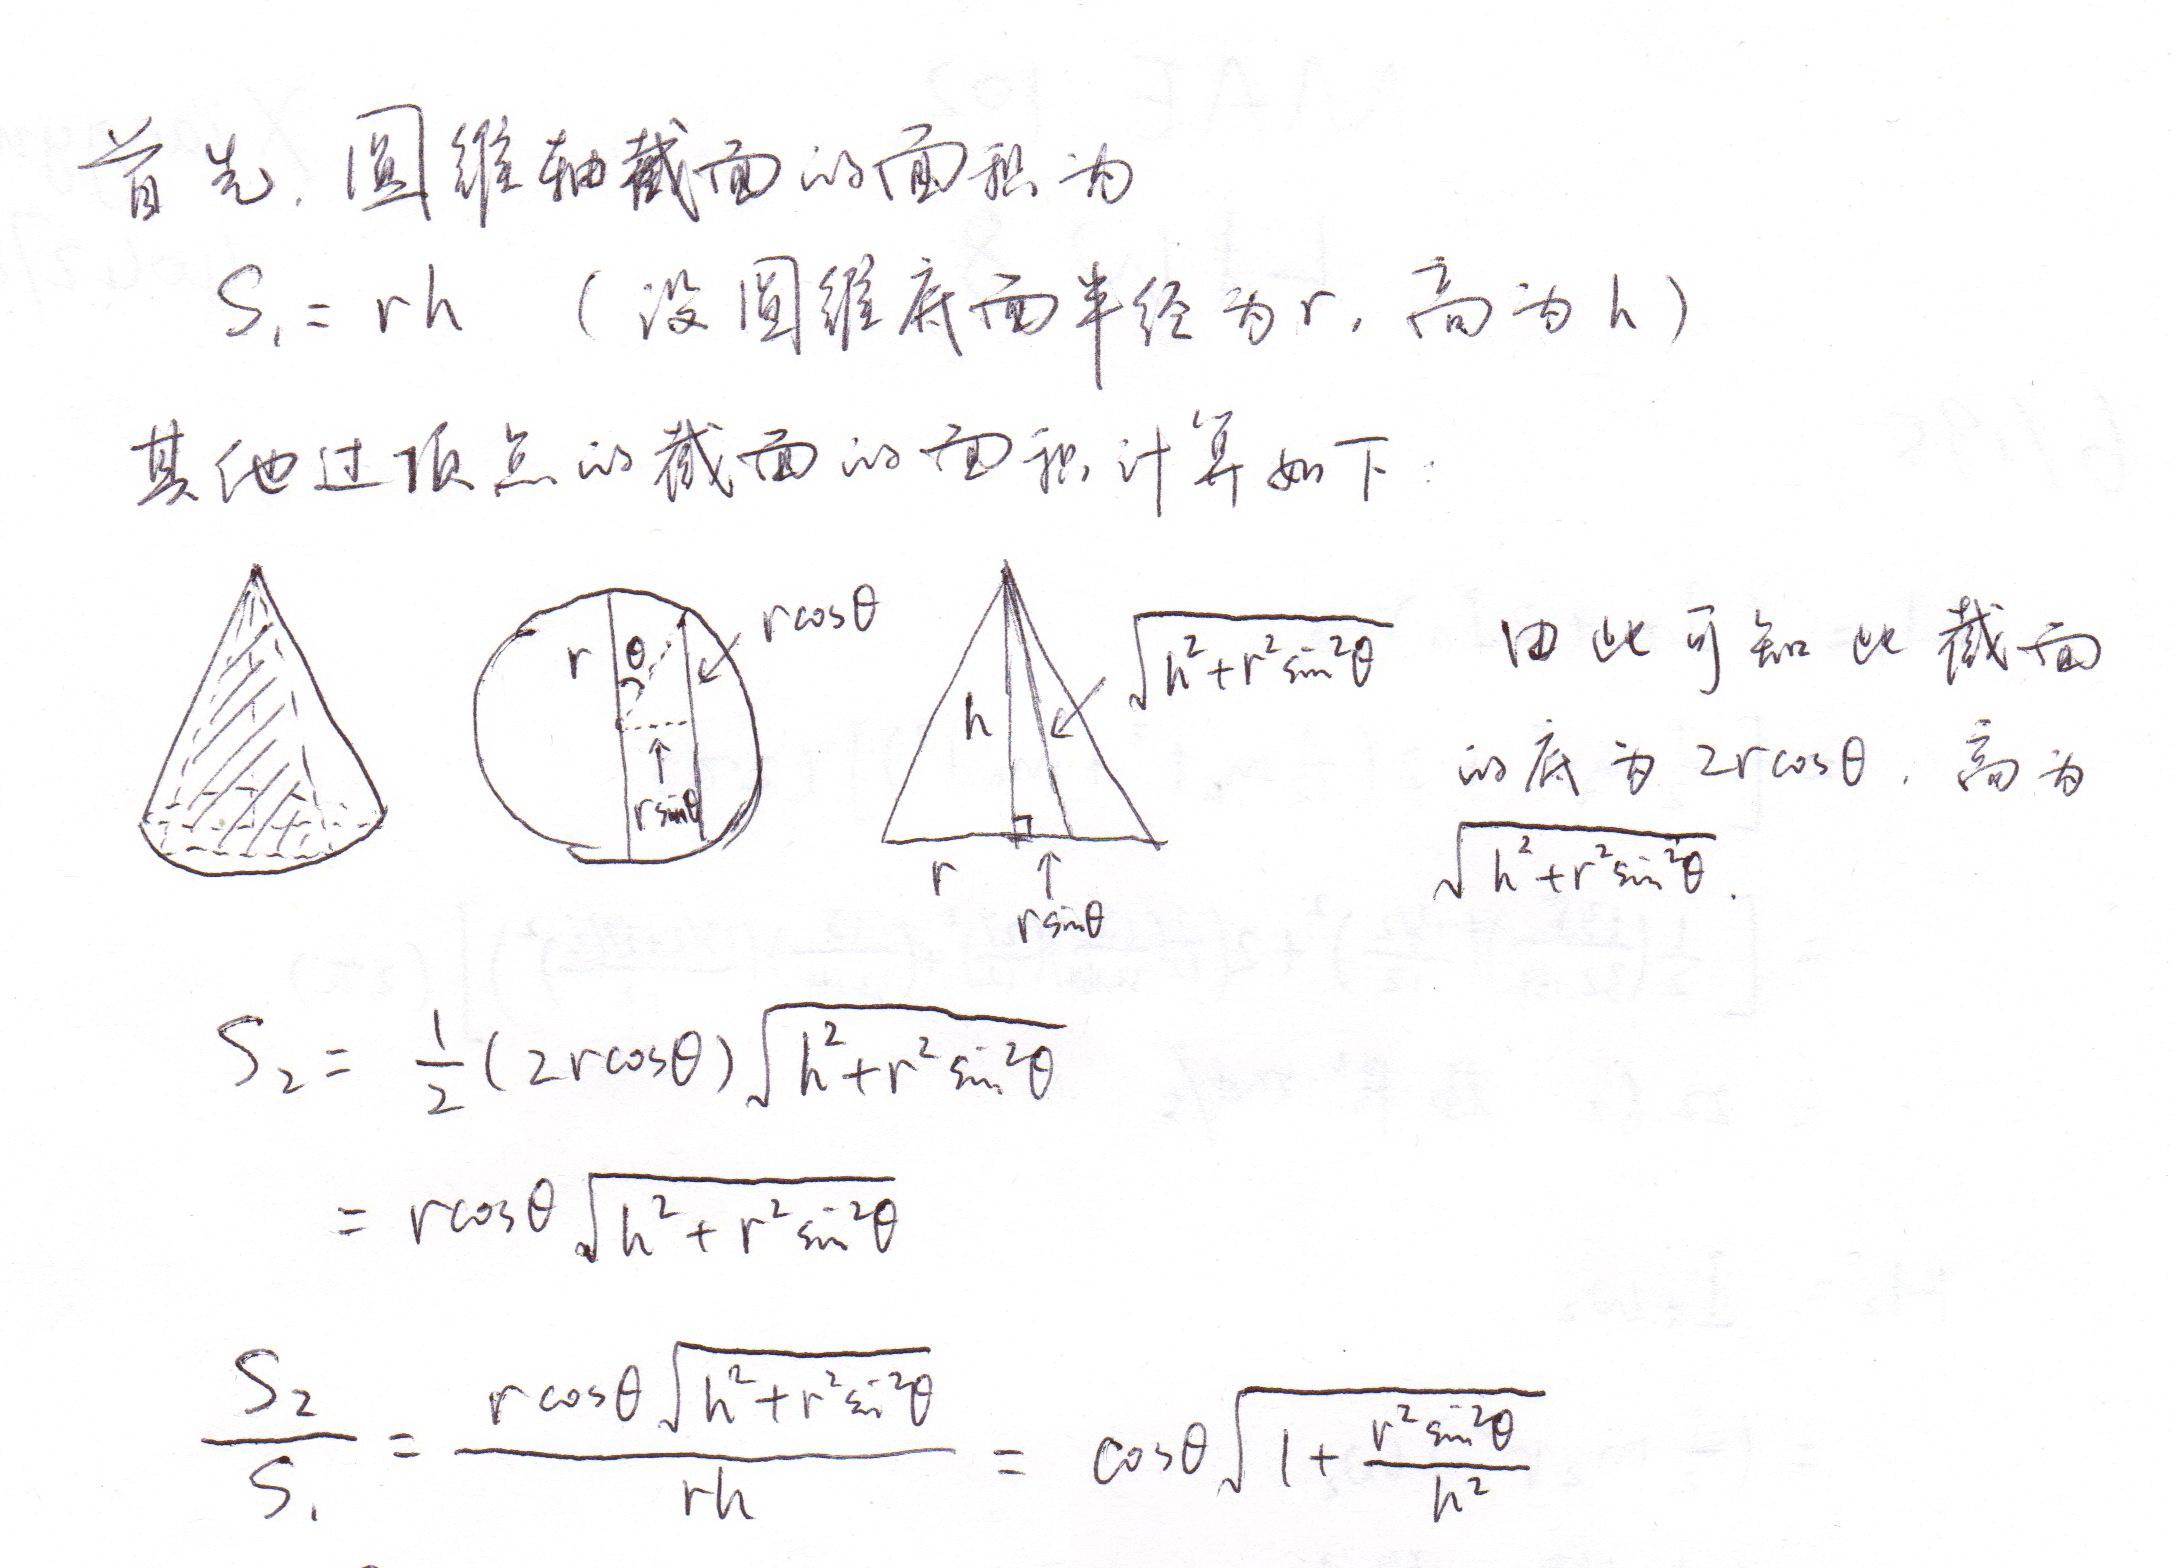 首先,圆锥轴截面的面积为
S₁ = rh (设圆锥底面半径为r,高为h)
其他过顶点的截面的面积计算如下:
r θ rcosθ
rsinθ
h √(h²+r²sin²θ)
r rsinθ
由此可知此截面
的底为2rcosθ,高为
√(h²+r²sin²θ).
S₂ = 1/2 (2rcosθ)√(h²+r²sin²θ)
= rcosθ√(h²+r²sin²θ)
S₂/S₁ = rcosθ√(h²+r²sin²θ)/rh = cosθ√(1+r²sin²θ/h²)